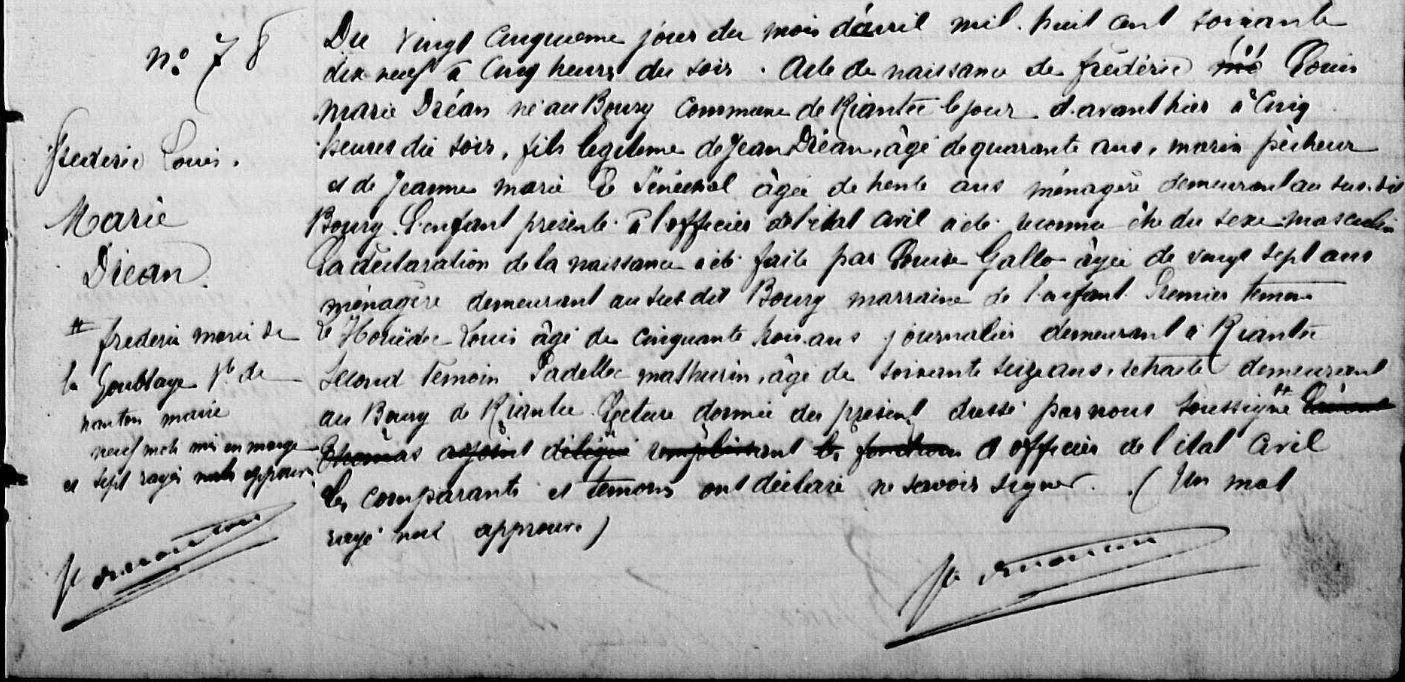 n° 78
Frédéric Louis.
Marie
Dréan.
Du vingt cinquième jour du mois d'avril mil huit cent soixante
dix neuf à cinq heures du soir. Acte de naissance de frédéric né Louis
marie Dréan né au Bourg commune de Riantec le jour d'avant hier à cinq
heures du soir, fils légitime de Jean Dréan, âgé de quarante ans, marin pêcheur
et de Jeanne marie Le Sénéchal âgée de trente ans ménagère demeurant au sus-dit
Bourg. L'enfant présenté à l'officier de l'état civil a été reconnu être du sexe masculin
La déclaration de la naissance a été faite par Louise Gallo âgée de vingt sept ans
ménagère demeurant au susdit Bourg marraine de l'enfant. Premier témoin
Le Louis âgé de cinquante trois ans journalier demeurant à Riantec
second témoin Padellec mathurin, âgé de soixante seize ans, retraité demeurant
au Bourg de Riantec Lecture donnée du présent dressé par nous soussigné
Thomas adjoint délégué remplissant les fonctions d'officier de l'état civil
les comparants et témoins ont déclaré ne savoir signer. (Un mot
rayé nul approuvé)
# frédéric marie de
la Goublaye de
nanton maire
neuf mots mis en marge
et sept rayés nuls approuvés
de nanton
de nanton